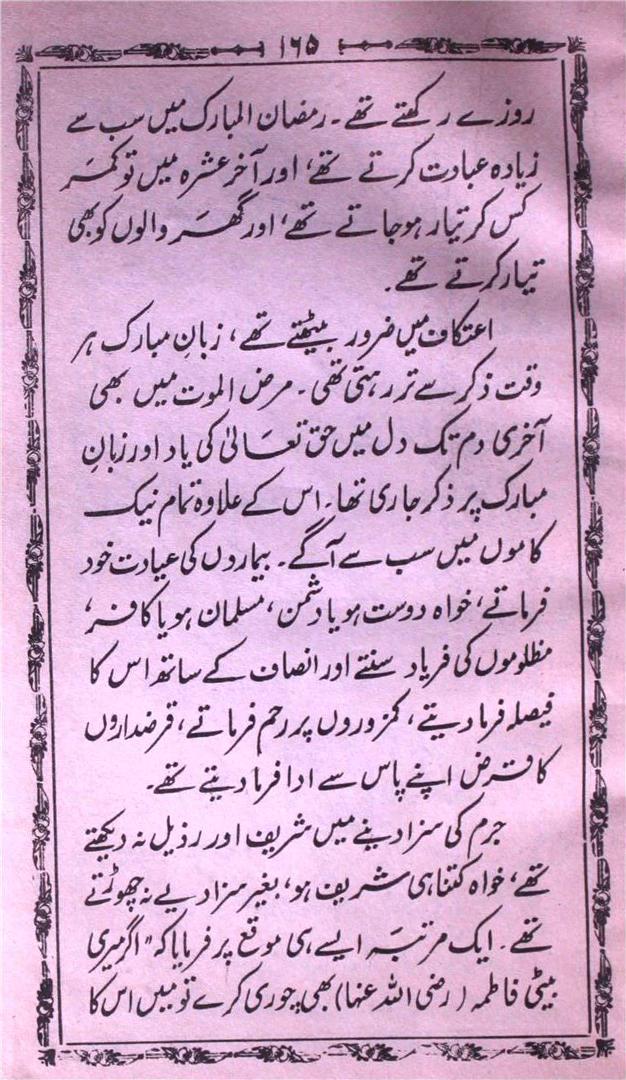 ۱۶۵
روزے رکھتے تھے۔ رمضان المبارک میں سب سے
زیادہ عبادت کرتے تھے، اور آخر عشرہ میں تو کمر
کس کر تیار ہوجاتے تھے، اور گھر والوں کو بھی
تیار کرتے تھے۔
اعتکاف میں ضرور بیٹھتے تھے، زبانِ مبارک ہر
وقت ذکر سے تر رہتی تھی۔ مرض الموت میں بھی
آخری دم تک دل میں حق تعالیٰ کی یاد اور زبانِ
مبارک پر ذکر جاری تھا۔ اس کے علاوہ تمام نیک
کاموں میں سب سے آگے۔ بیماروں کی عیادت خود
فرماتے، خواہ دوست ہو یا دشمن، مسلمان ہو یا کافر،
مظلوموں کی فریاد سنتے اور انصاف کے ساتھ اس کا
فیصلہ فرما دیتے، کمزوروں پر رحم فرماتے، قرضداروں
کا قرض اپنے پاس سے ادا فرما دیتے تھے۔
جرم کی سزا دینے میں شریف اور رذیل نہ دیکھتے
تھے، خواہ کتنا ہی شریف ہو، بغیر سزا دیے نہ چھوڑتے
تھے۔ ایک مرتبہ ایسے ہی موقع پر فرمایا کہ "اگر میری
بیٹی فاطمہ (رضی اللہ عنہا) بھی چوری کرے تو میں اس کا